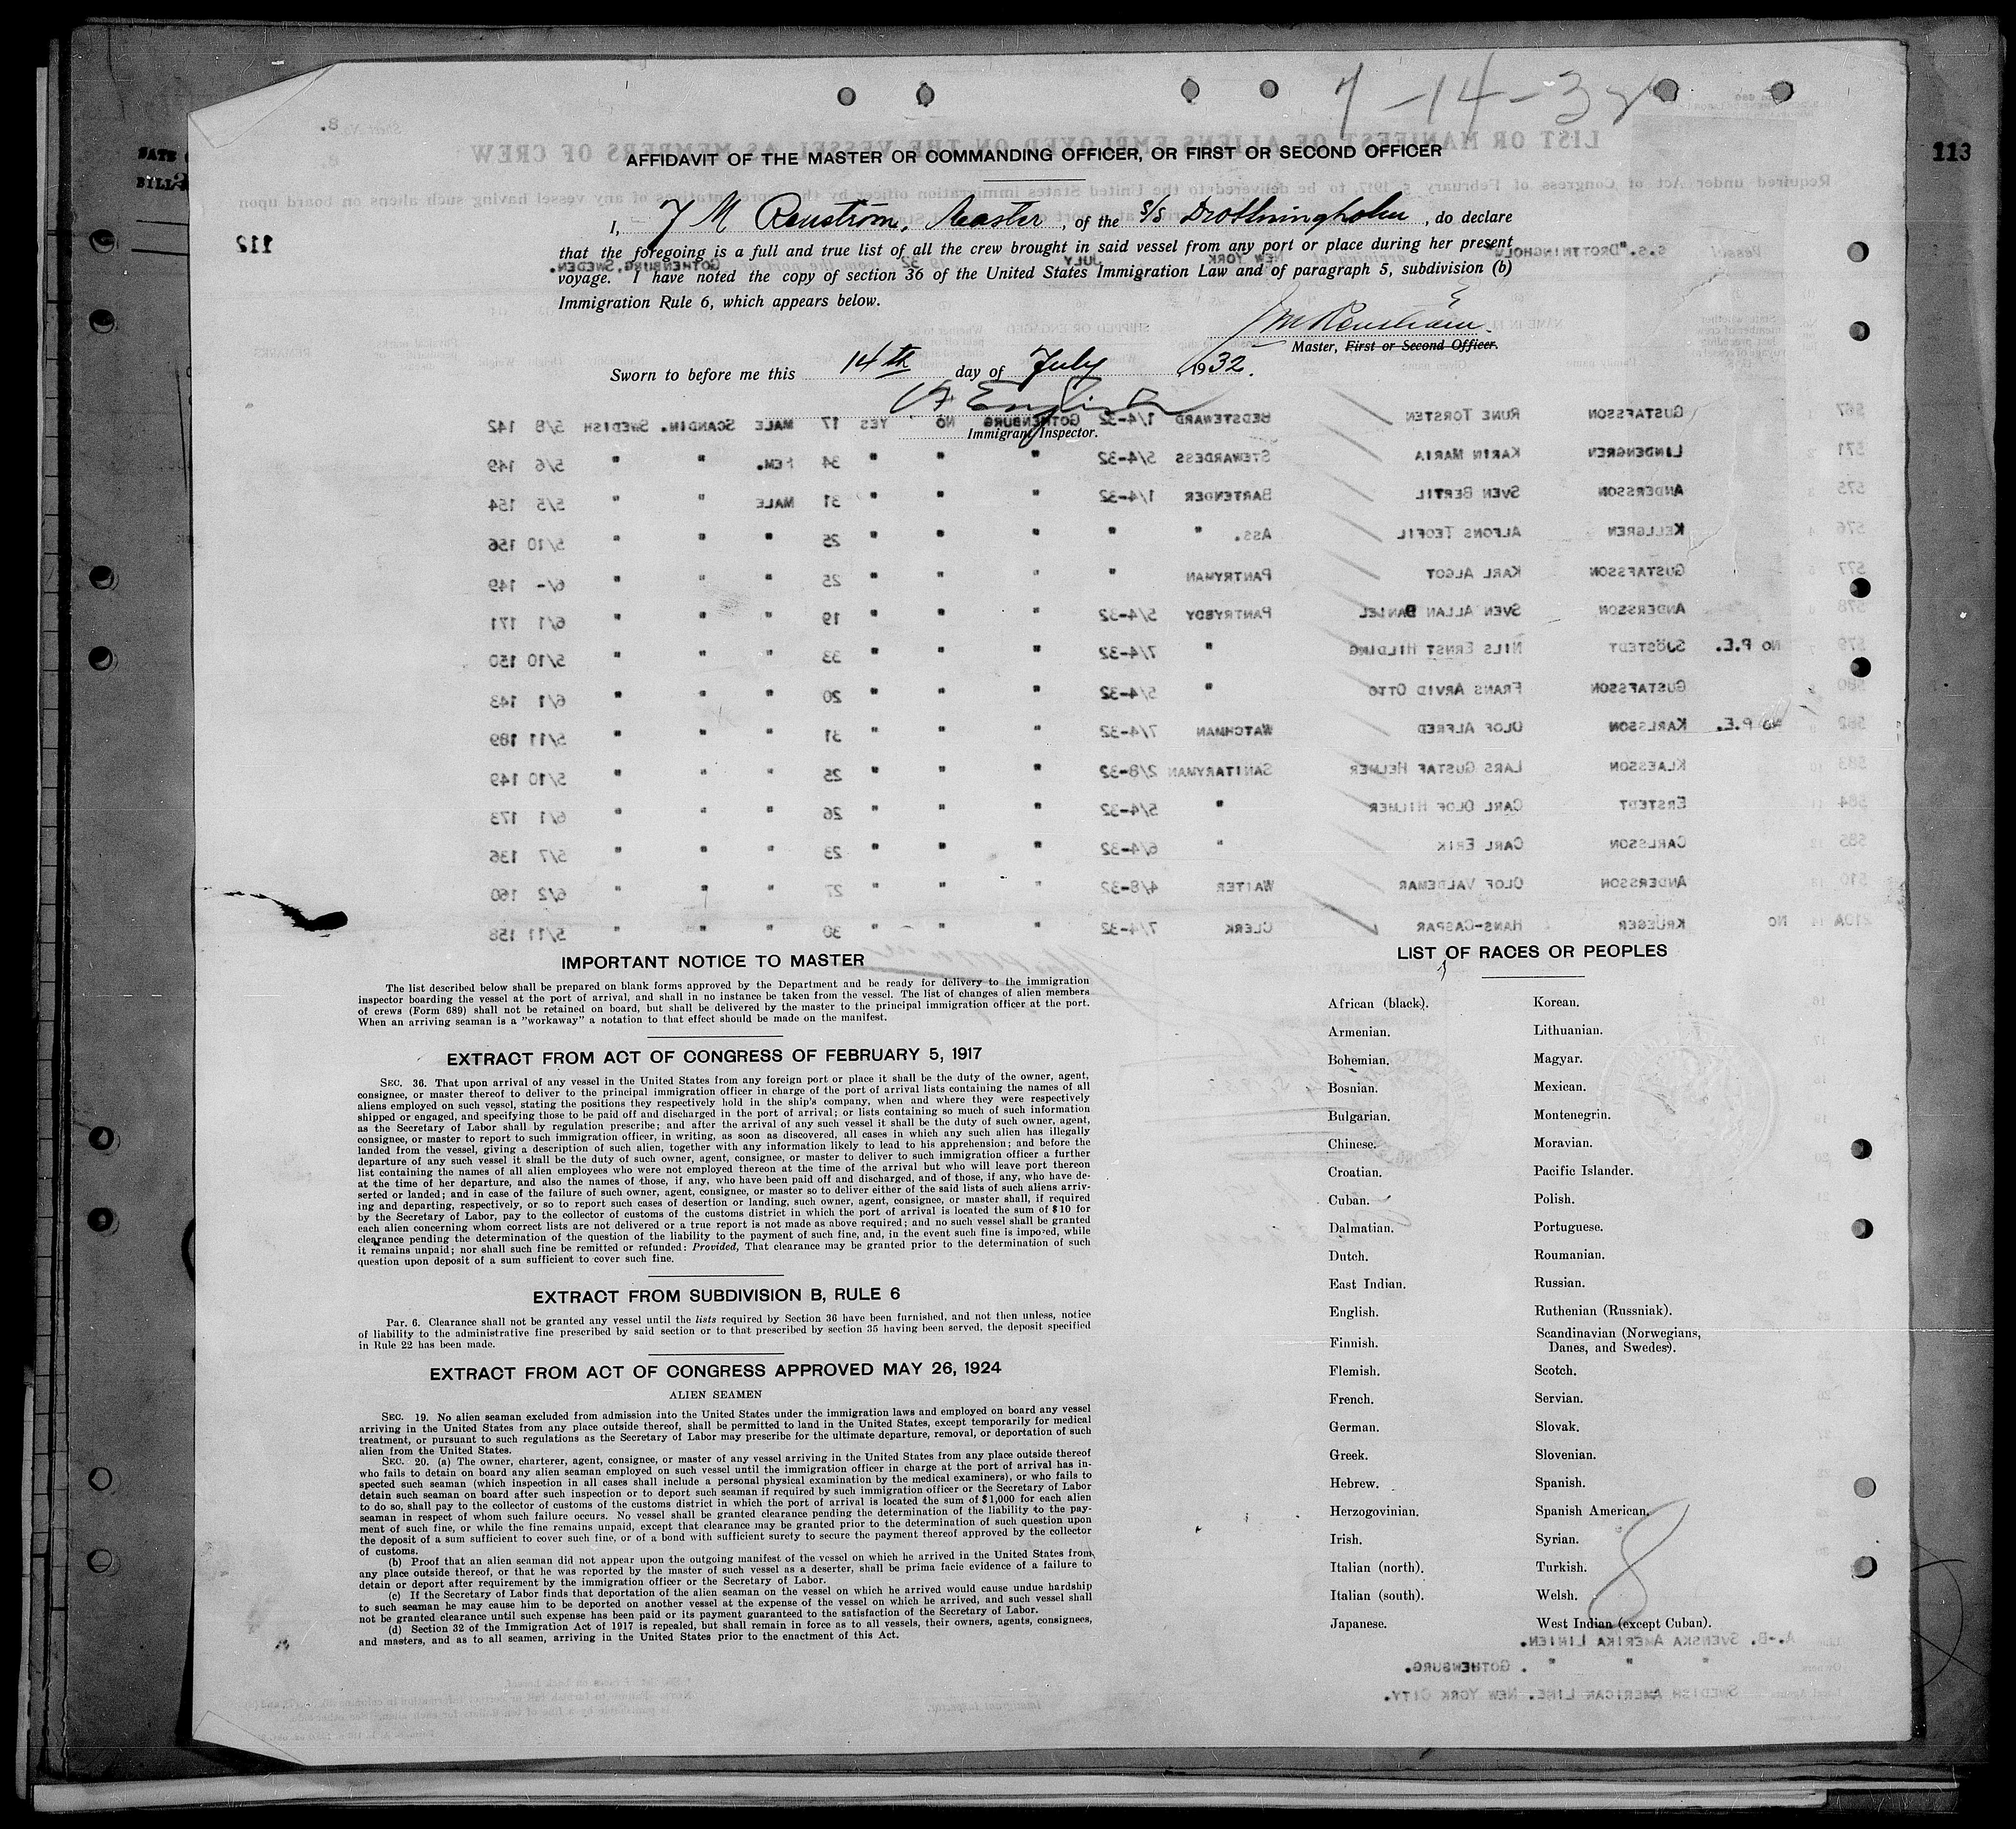 7-14-32
113
AFFIDAVIT OF THE MASTER OR COMMANDING OFFICER, OR FIRST OR SECOND OFFICER
I, J M Renström, Master, of the S/S Drottningholm, do declare
that the foregoing is a full and true list of all the crew brought in said vessel from any port or place during her present
voyage. I have noted the copy of section 36 of the United States Immigration Law and of paragraph 5, subdivision (b)
Immigration Rule 6, which appears below.
Master, First or Second Officer.
Sworn to before me this 14th day of July, 1932.
Immigrant Inspector.
112
LIST OR MANIFEST OF ALIENS EMPLOYED ON THE VESSEL AS MEMBERS OF CREW
Required under Act of Congress of February 5, 1917, to be delivered to the United States immigration officer by the representatives of any vessel having such aliens on board upon
S.S. "DROTTNINGHOLM" NEW YORK JULY GOTHENBURG, SWEDEN.
567 GUSTAFSSON RUNE TORSTEN BEDSTEWARD 1/4-32 GOTHENBURG NO YES 17 MALE SCANDIN. SWEDISH 5/8 142
571 LINDENGREN KARIN MARIA STEWARDESS 5/4-32 " " " 34 FEM. " " 5/6 149
575 ANDERSSON SVEN BERTIL BARTENDER 1/4-32 " " " 31 MALE " " 5/5 154
576 KELLGREN ALFONS TEOFIL ASS. " " " " " 25 " " " 5/10 156
577 GUSTAFSSON KARL ALGOT PANTRYMAN " " " " 25 " " " 6/- 149
578 ANDERSSON SVEN ALLAN DANIEL PANTRYBOY 5/4-32 " " " 19 " " " 6/1 171
579 NO P.E. SJÖSTEDT NILS ERNST HILDING " 7/4-32 " " " 33 " " " 5/10 150
580 GUSTAFSSON FRANS ARVID OTTO " 5/4-32 " " " 20 " " " 6/1 143
582 NO P.E. KARLSSON OLOF ALFRED WATCHMAN 7/4-32 " " " 31 " " " 5/11 189
583 KLAESSON LARS GUSTAF HELMER SANITARYMAN 2/8-32 " " " 25 " " " 5/10 149
584 ERSTEDT CARL OLOF HILMER " 5/4-32 " " " 26 " " " 6/1 173
585 CARLSSON CARL ERIK " 6/4-32 " " " 23 " " " 5/7 136
510 ANDERSSON OLOF VALDEMAR WAITER 4/8-32 " " " 27 " " " 6/2 160
210A NO KRUEGER HANS-CASPAR CLERK 7/4-32 " " " 30 " " " 5/11 158
IMPORTANT NOTICE TO MASTER
The list described below shall be prepared on blank forms approved by the Department and be ready for delivery to the immigration
inspector boarding the vessel at the port of arrival, and shall in no instance be taken from the vessel. The list of changes of alien members
of crews (Form 689) shall not be retained on board, but shall be delivered by the master to the principal immigration officer at the port.
When an arriving seaman is a "workaway" a notation to that effect should be made on the manifest.
EXTRACT FROM ACT OF CONGRESS OF FEBRUARY 5, 1917
SEC. 36. That upon arrival of any vessel in the United States from any foreign port or place it shall be the duty of the owner, agent,
consignee, or master thereof to deliver to the principal immigration officer in charge of the port of arrival lists containing the names of all
aliens employed on such vessel, stating the positions they respectively hold in the ship's company, when and where they were respectively
shipped or engaged, and specifying those to be paid off and discharged in the port of arrival; or lists containing so much of such information
as the Secretary of Labor shall by regulation prescribe; and after the arrival of any such vessel it shall be the duty of such owner, agent,
consignee, or master to report to such immigration officer, in writing, as soon as discovered, all cases in which any such alien has illegally
landed from the vessel, giving a description of such alien, together with any information likely to lead to his apprehension; and before the
departure of any such vessel it shall be the duty of such owner, agent, consignee, or master to deliver to such immigration officer a further
list containing the names of all alien employees who were not employed thereon at the time of the arrival but who will leave port thereon
at the time of her departure, and also the names of those, if any, who have been paid off and discharged, and of those, if any, who have de-
serted or landed; and in case of the failure of such owner, agent, consignee, or master so to deliver either of the said lists of such aliens arriv-
ing and departing, respectively, or so to report such cases of desertion or landing, such owner, agent, consignee, or master shall, if required
by the Secretary of Labor, pay to the collector of customs of the customs district in which the port of arrival is located the sum of $10 for
each alien concerning whom correct lists are not delivered or a true report is not made as above required; and no such vessel shall be granted
clearance pending the determination of the question of the liability to the payment of such fine, and, in the event such fine is imposed, while
it remains unpaid; nor shall such fine be remitted or refunded: Provided, That clearance may be granted prior to the determination of such
question upon deposit of a sum sufficient to cover such fine.
EXTRACT FROM SUBDIVISION B, RULE 6
Par. 6. Clearance shall not be granted any vessel until the lists required by Section 36 have been furnished, and not then unless, notice
of liability to the administrative fine prescribed by said section or to that prescribed by section 35 having been served, the deposit specified
in Rule 22 has been made.
EXTRACT FROM ACT OF CONGRESS APPROVED MAY 26, 1924
ALIEN SEAMEN
SEC. 19. No alien seaman excluded from admission into the United States under the immigration laws and employed on board any vessel
arriving in the United States from any place outside thereof, shall be permitted to land in the United States, except temporarily for medical
treatment, or pursuant to such regulations as the Secretary of Labor may prescribe for the ultimate departure, removal, or deportation of such
alien from the United States.
SEC. 20. (a) The owner, charterer, agent, consignee, or master of any vessel arriving in the United States from any place outside thereof
who fails to detain on board any alien seaman employed on such vessel until the immigration officer in charge at the port of arrival has in-
spected such seaman (which inspection in all cases shall include a personal physical examination by the medical examiners), or who fails to
detain such seaman on board after such inspection or to deport such seaman if required by such immigration officer or the Secretary of Labor
to do so, shall pay to the collector of customs of the customs district in which the port of arrival is located the sum of $1,000 for each alien
seaman in respect of whom such failure occurs. No vessel shall be granted clearance pending the determination of the liability to the pay-
ment of such fine, or while the fine remains unpaid, except that clearance may be granted prior to the determination of such question upon
the deposit of a sum sufficient to cover such fine, or of a bond with sufficient surety to secure the payment thereof approved by the collector
of customs.
(b) Proof that an alien seaman did not appear upon the outgoing manifest of the vessel on which he arrived in the United States from
any place outside thereof, or that he was reported by the master of such vessel as a deserter, shall be prima facie evidence of a failure to
detain or deport after requirement by the immigration officer or the Secretary of Labor.
(c) If the Secretary of Labor finds that deportation of the alien seaman on the vessel on which he arrived would cause undue hardship
to such seaman he may cause him to be deported on another vessel at the expense of the vessel on which he arrived, and such vessel shall
not be granted clearance until such expense has been paid or its payment guaranteed to the satisfaction of the Secretary of Labor.
(d) Section 32 of the Immigration Act of 1917 is repealed, but shall remain in force as to all vessels, their owners, agents, consignees,
and masters, and as to all seamen, arriving in the United States prior to the enactment of this Act.
LIST OF RACES OR PEOPLES
African (black).
Armenian.
Bohemian.
Bosnian.
Bulgarian.
Chinese.
Croatian.
Cuban.
Dalmatian.
Dutch.
East Indian.
English.
Finnish.
Flemish.
French.
German.
Greek.
Hebrew.
Herzogovinian.
Irish.
Italian (north).
Italian (south).
Japanese.
Korean.
Lithuanian.
Magyar.
Mexican.
Montenegrin.
Moravian.
Pacific Islander.
Polish.
Portuguese.
Roumanian.
Russian.
Ruthenian (Russniak).
Scandinavian (Norwegians,
Danes, and Swedes).
Scotch.
Servian.
Slovak.
Slovenian.
Spanish.
Spanish American.
Syrian.
Turkish.
Welsh.
West Indian (except Cuban).
8
A.-B. SVENSKA AMERIKA LINIEN.
" " " . GOTHENBURG.
SWEDISH AMERICAN LINE. NEW YORK CITY.